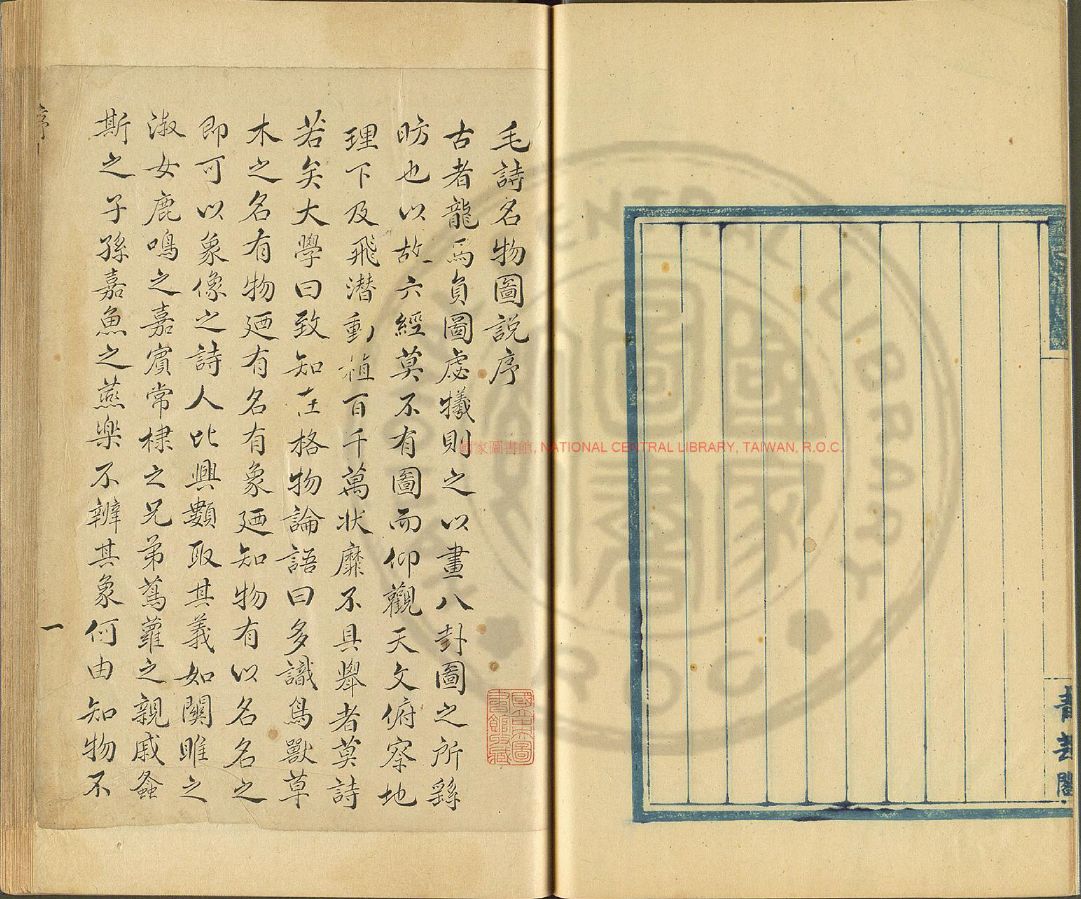 青芸閣
毛詩名物圖說序
古者龍馬負圖虙犧則之以畫八卦圖之所繇
昉也以故六經莫不有圖而仰觀天文俯察地
理下及飛潛動植百千萬狀靡不具舉者莫詩
若矣大學曰致知在格物論語曰多識鳥獸草
木之名有物廼有名有象廼知物有以名名之
即可以象像之詩人比興類取其義如關雎之
淑女鹿鳴之嘉賓常棣之兄弟蔦蘿之親戚螽
斯之子孫嘉魚之燕樂不辨其象何由知物不
序
一
國家圖書館, NATIONAL CENTRAL LIBRARY, TAIWAN, R.O.C.